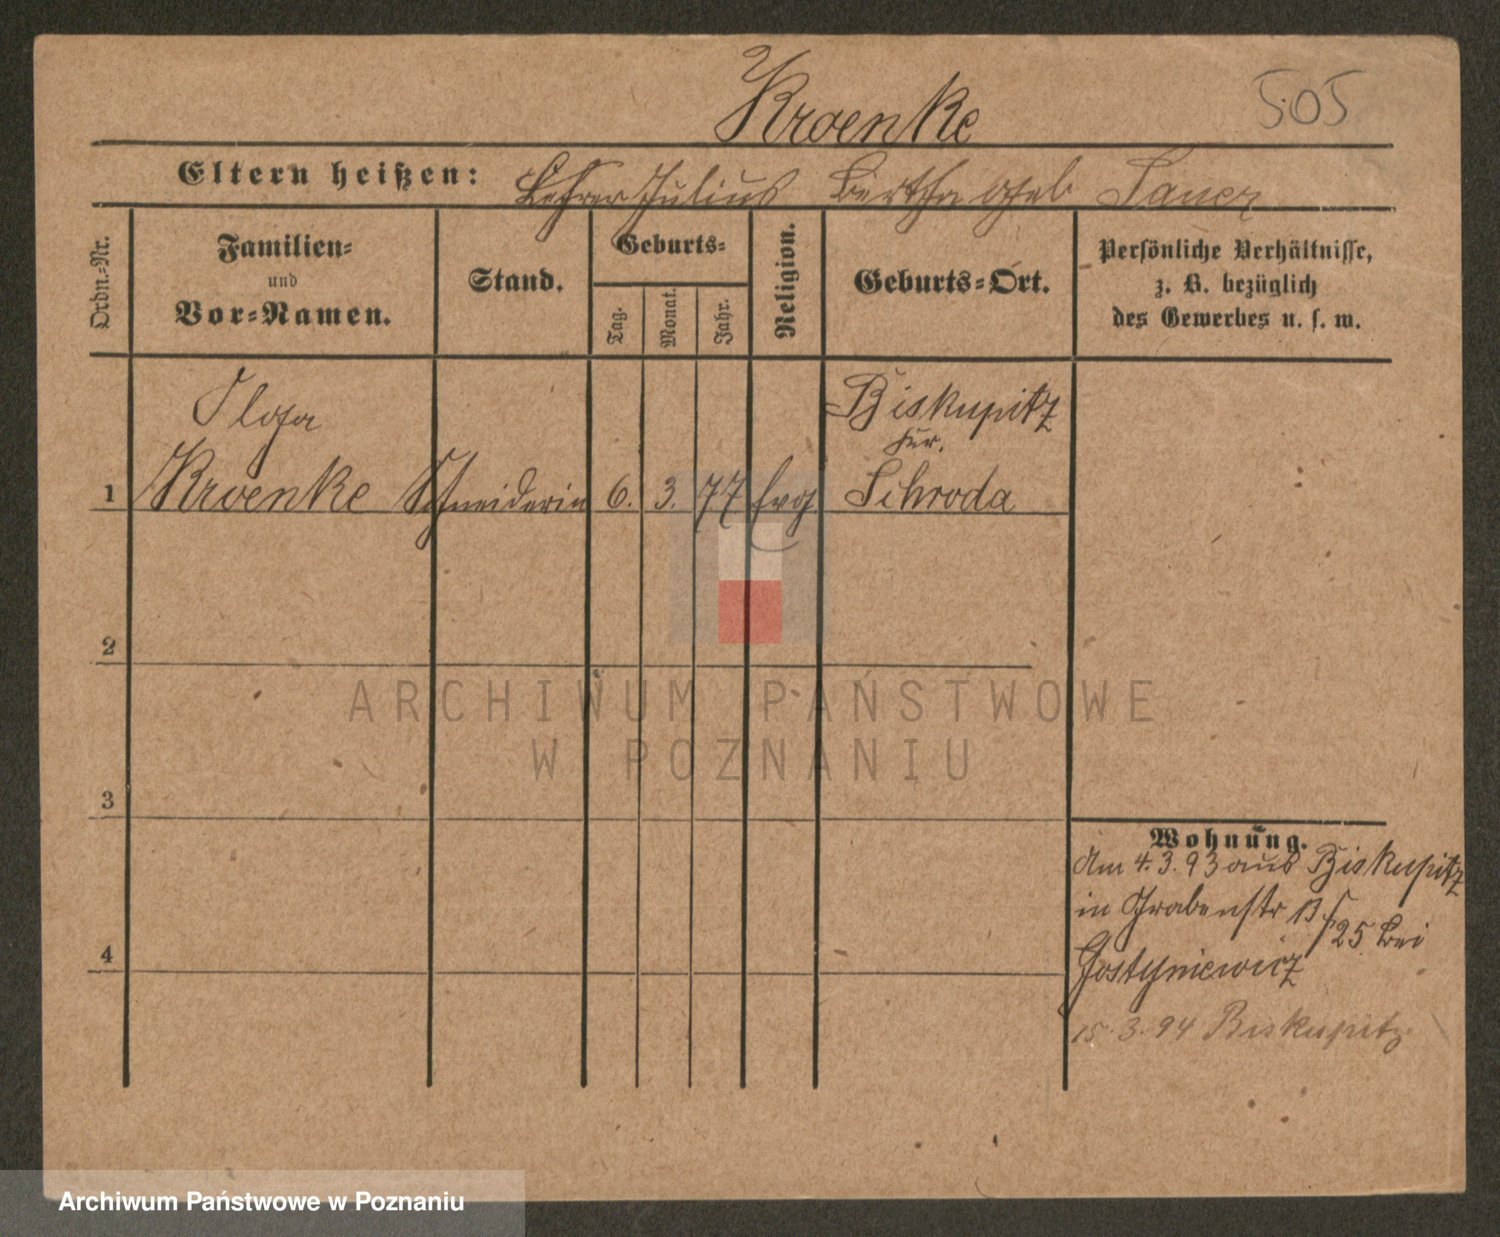 Kroenke
505
Eltern heißen: Lehrer Julius Bertha geb Sauer
Ordn.-Nr.
Familien-
und
Vor-Namen.
Stand.
Geburts-
Tag.
Monat.
Jahr.
Religion.
Geburts-Ort.
Persönliche Verhältnisse,
z. B. bezüglich
des Gewerbes u. s. w.
Olga
Biskupitz
1 Kroenke Schneiderin 6. 3. 77 Evg. Schroda
2
3
4
Wohnung.
Am 4.3.93 aus Biskupitz
in Grabenstr 25 bei
Gostyniewicz
15.3.94 Biskupitz
ARCHIWUM PAŃSTWOWE
W POZNANIU
Archiwum Państwowe w Poznaniu